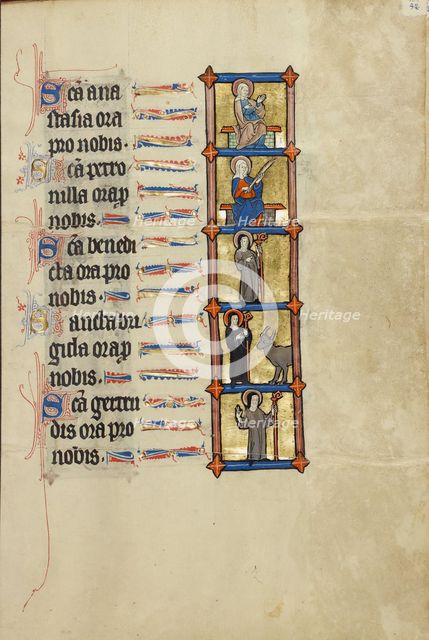 Sca ana
stasia ora
pro nobis.
Sca petro
nilla orap
nobis.
Sca benedi
cta ora pro
nobis.
Sancta bri
gida orap
nobis.
Sca gertru
dis ora pro
nobis.
Heritage
Heritage
Heritage
Heritage
Heritage
Heritage